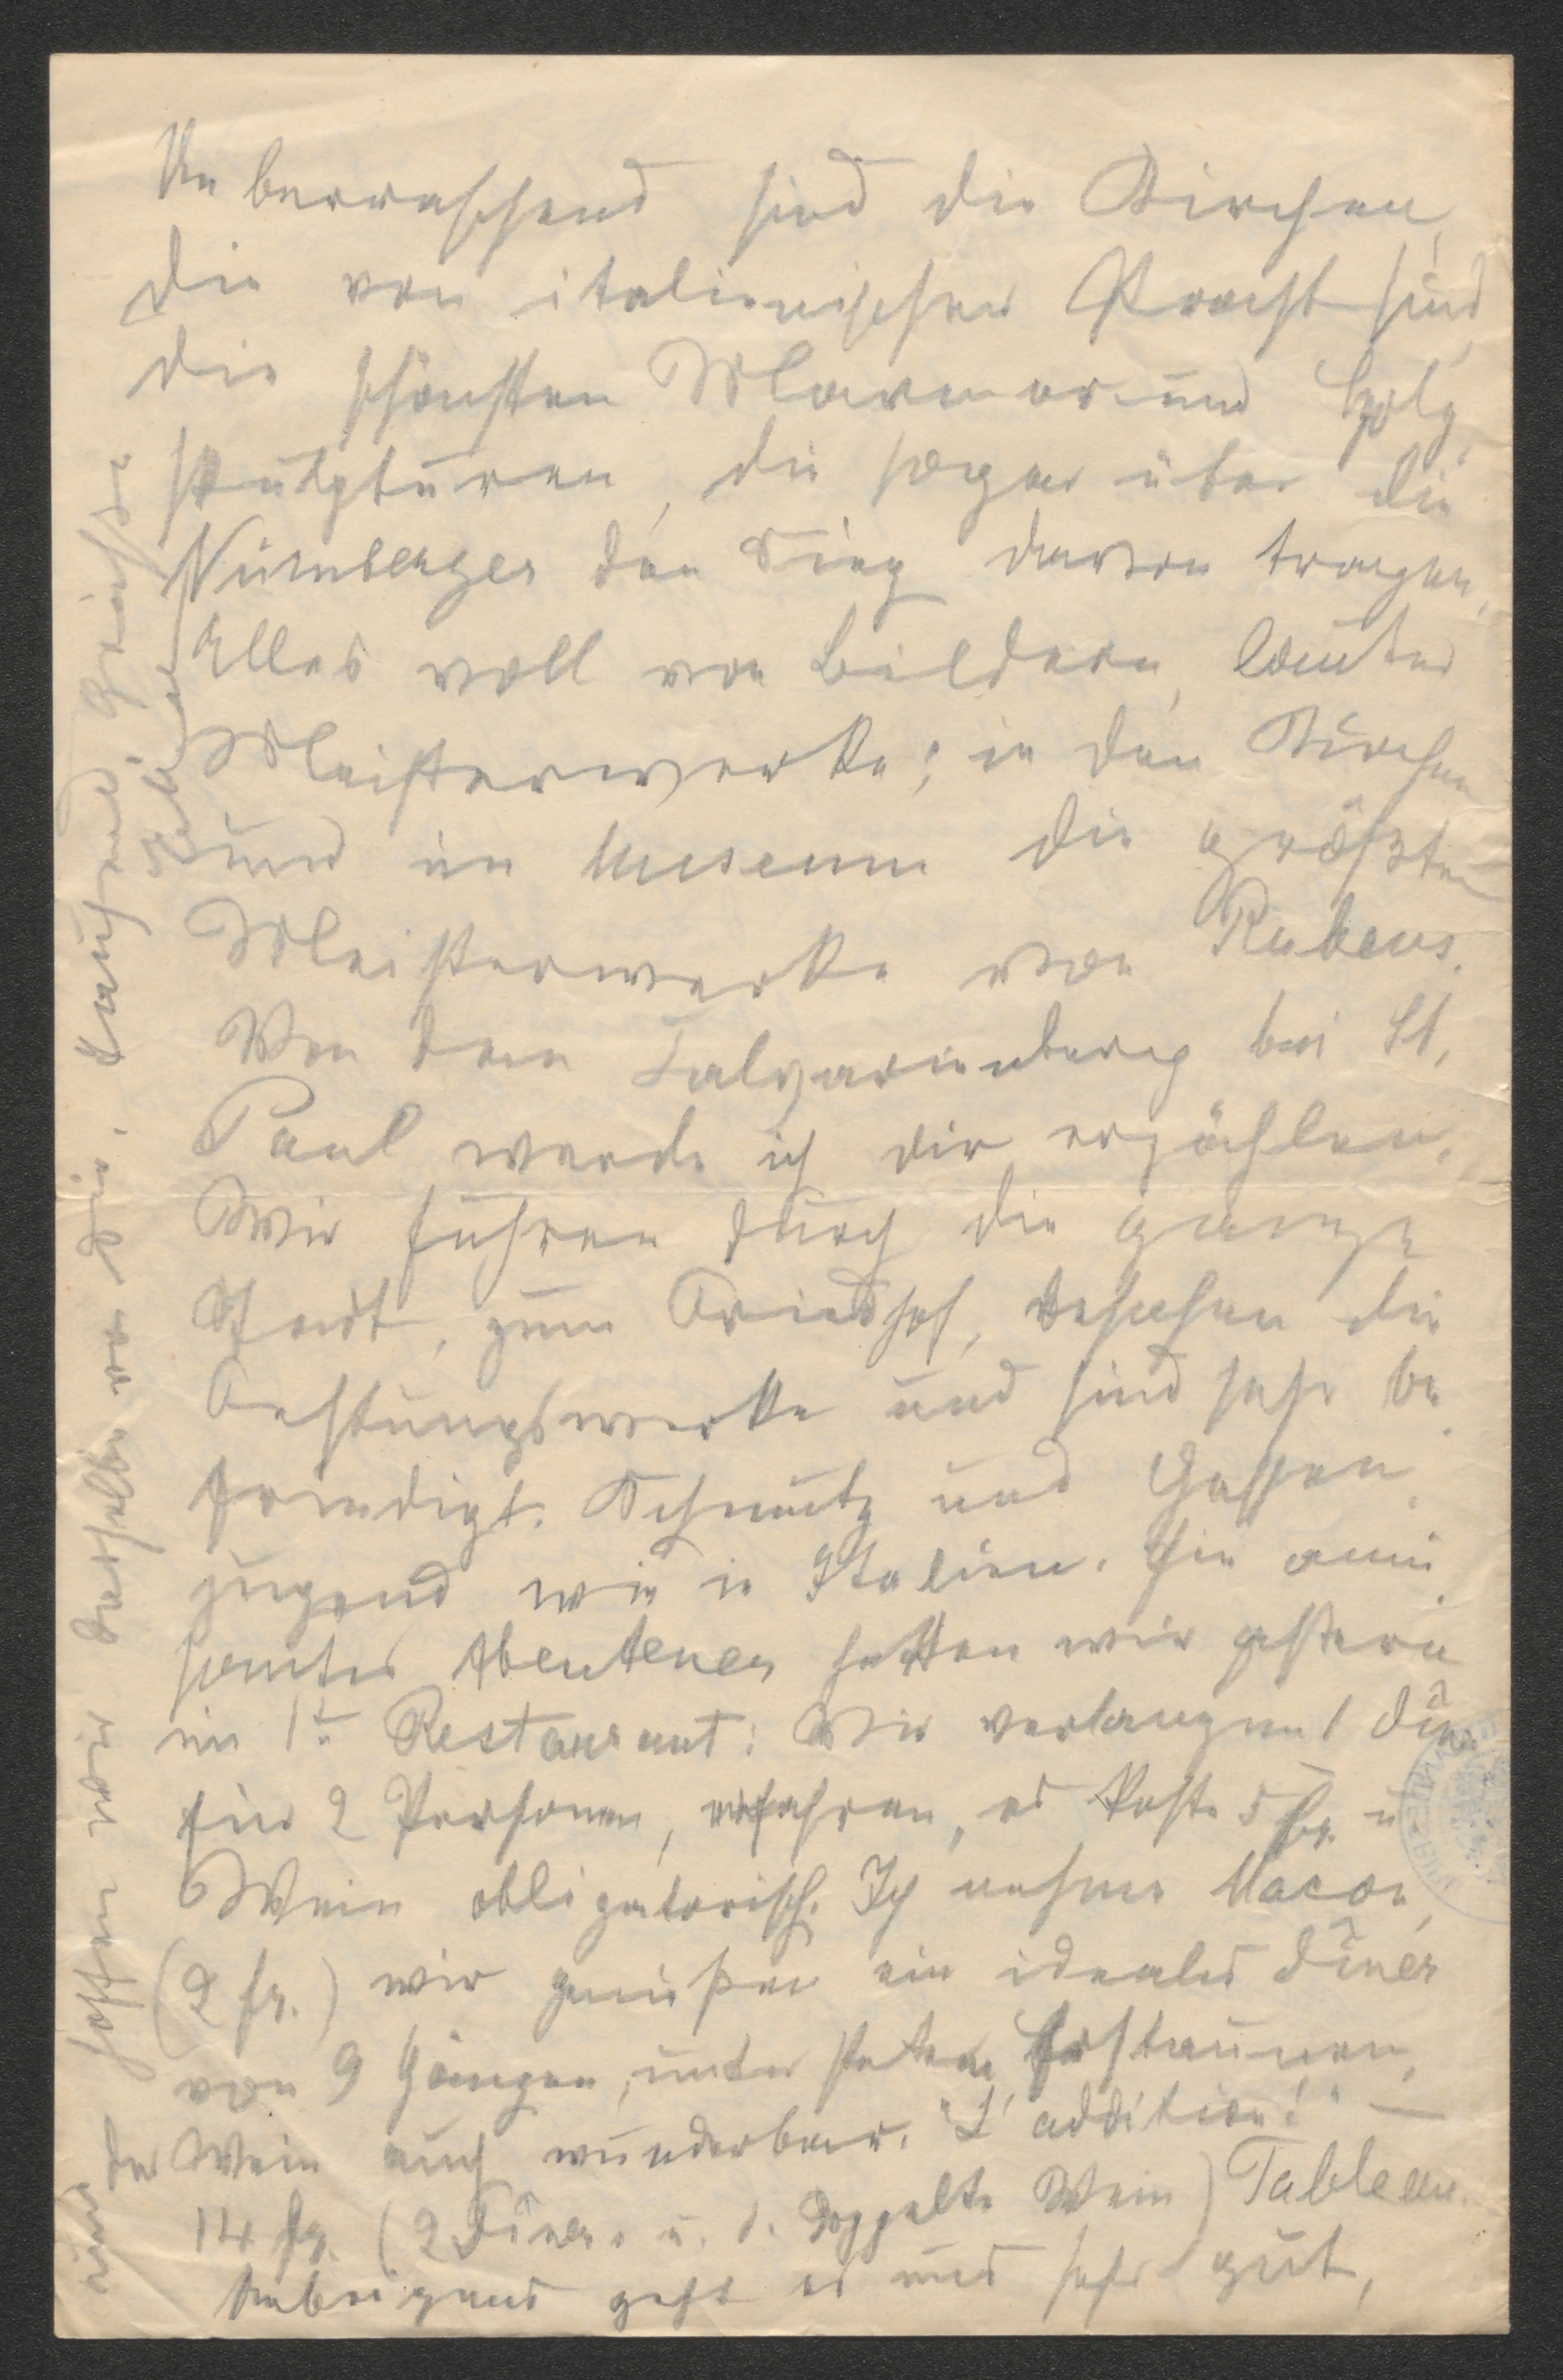 Ueberraschend sind die Kirchen,
die von italienischer Pracht sind,
die schönsten Marmor- und Holz-
skulpturen, die sogar über die
Nürnberger den Sieg davon tragen,
Alles voll von Bildern, lauter
Meisterwerke; in den Kirchen
und im Museum die größten
Meisterwerke von Rubens.
Von dem Calvarienberg bei St.
Paul werde ich dir erzählen.
Wir fuhren durch die ganze
Stadt, zum Friedhof, besahen die
Festungswerke und sind sehr be-
friedigt. Schmutz und Gassen-
jugend wie in Italien. Ein amü-
santes Abenteuer hatten wir gestern
im 1t Restaurant: Wir verlangen 1 dîner
für 2 Personen, erfahren, es koste 5 fr. u
Wein obligatorisch. Ich nehme Macon,
(2 fr.) wir genießen ein ideales dîner
von 9 Gängen, unter stetem Erstaunen,
der Wein auch wunderbar. "L'addition!" —
14 fr. (2 Dîners u. d. doppelte Wein) Tableau.
Uebrigens geht es uns sehr gut,
und hoffen wir dasselbe von dir. Tausend Grüße